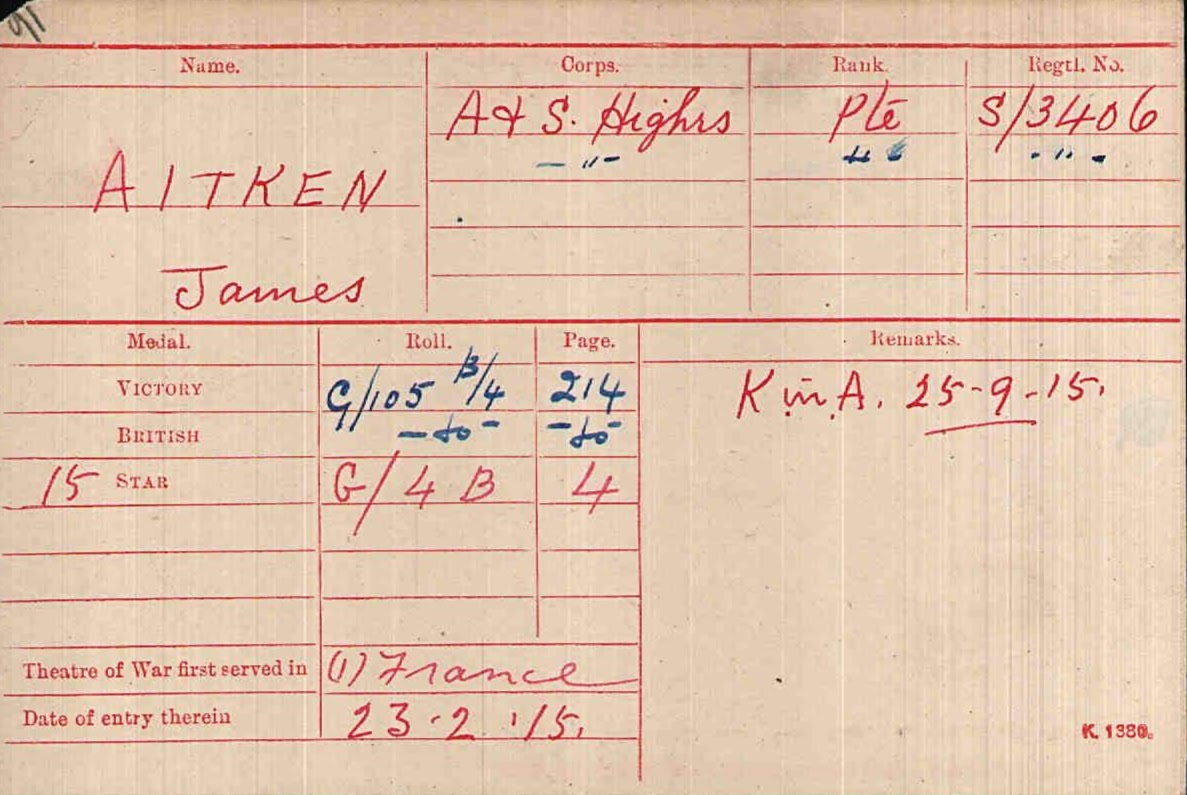 91
Name. Corps. Rank. Regtl. No.
A & S. Highrs Pte S/3406
— " — " " - " -
AITKEN
James
Medal. Roll. Page. Remarks.
VICTORY G/105 B/4 214 K in A. 25-9-15.
BRITISH - do - - do -
15 STAR G/4 B 4
Theatre of War first served in (1) France
Date of entry therein 23.2.15.
K. 1380.